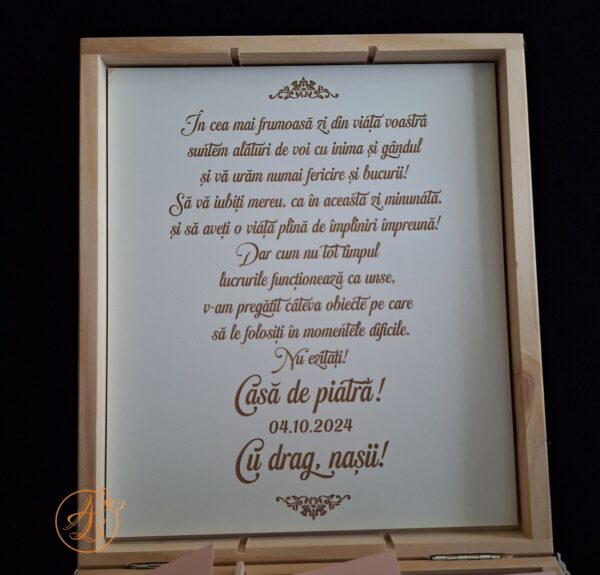 În cea mai frumoasă zi din viața voastră
suntem alături de voi cu inima și gândul
și vă urăm numai fericire și bucurii!
Să vă iubiți mereu, ca în această zi minunată,
și să aveți o viață plină de împliniri împreună!
Dar cum nu tot timpul
lucrurile funcționează ca unse,
v-am pregătit câteva obiecte pe care
să le folosiți în momentele dificile.
Nu ezitați!
Casă de piatră!
04.10.2024
Cu drag, nașii!